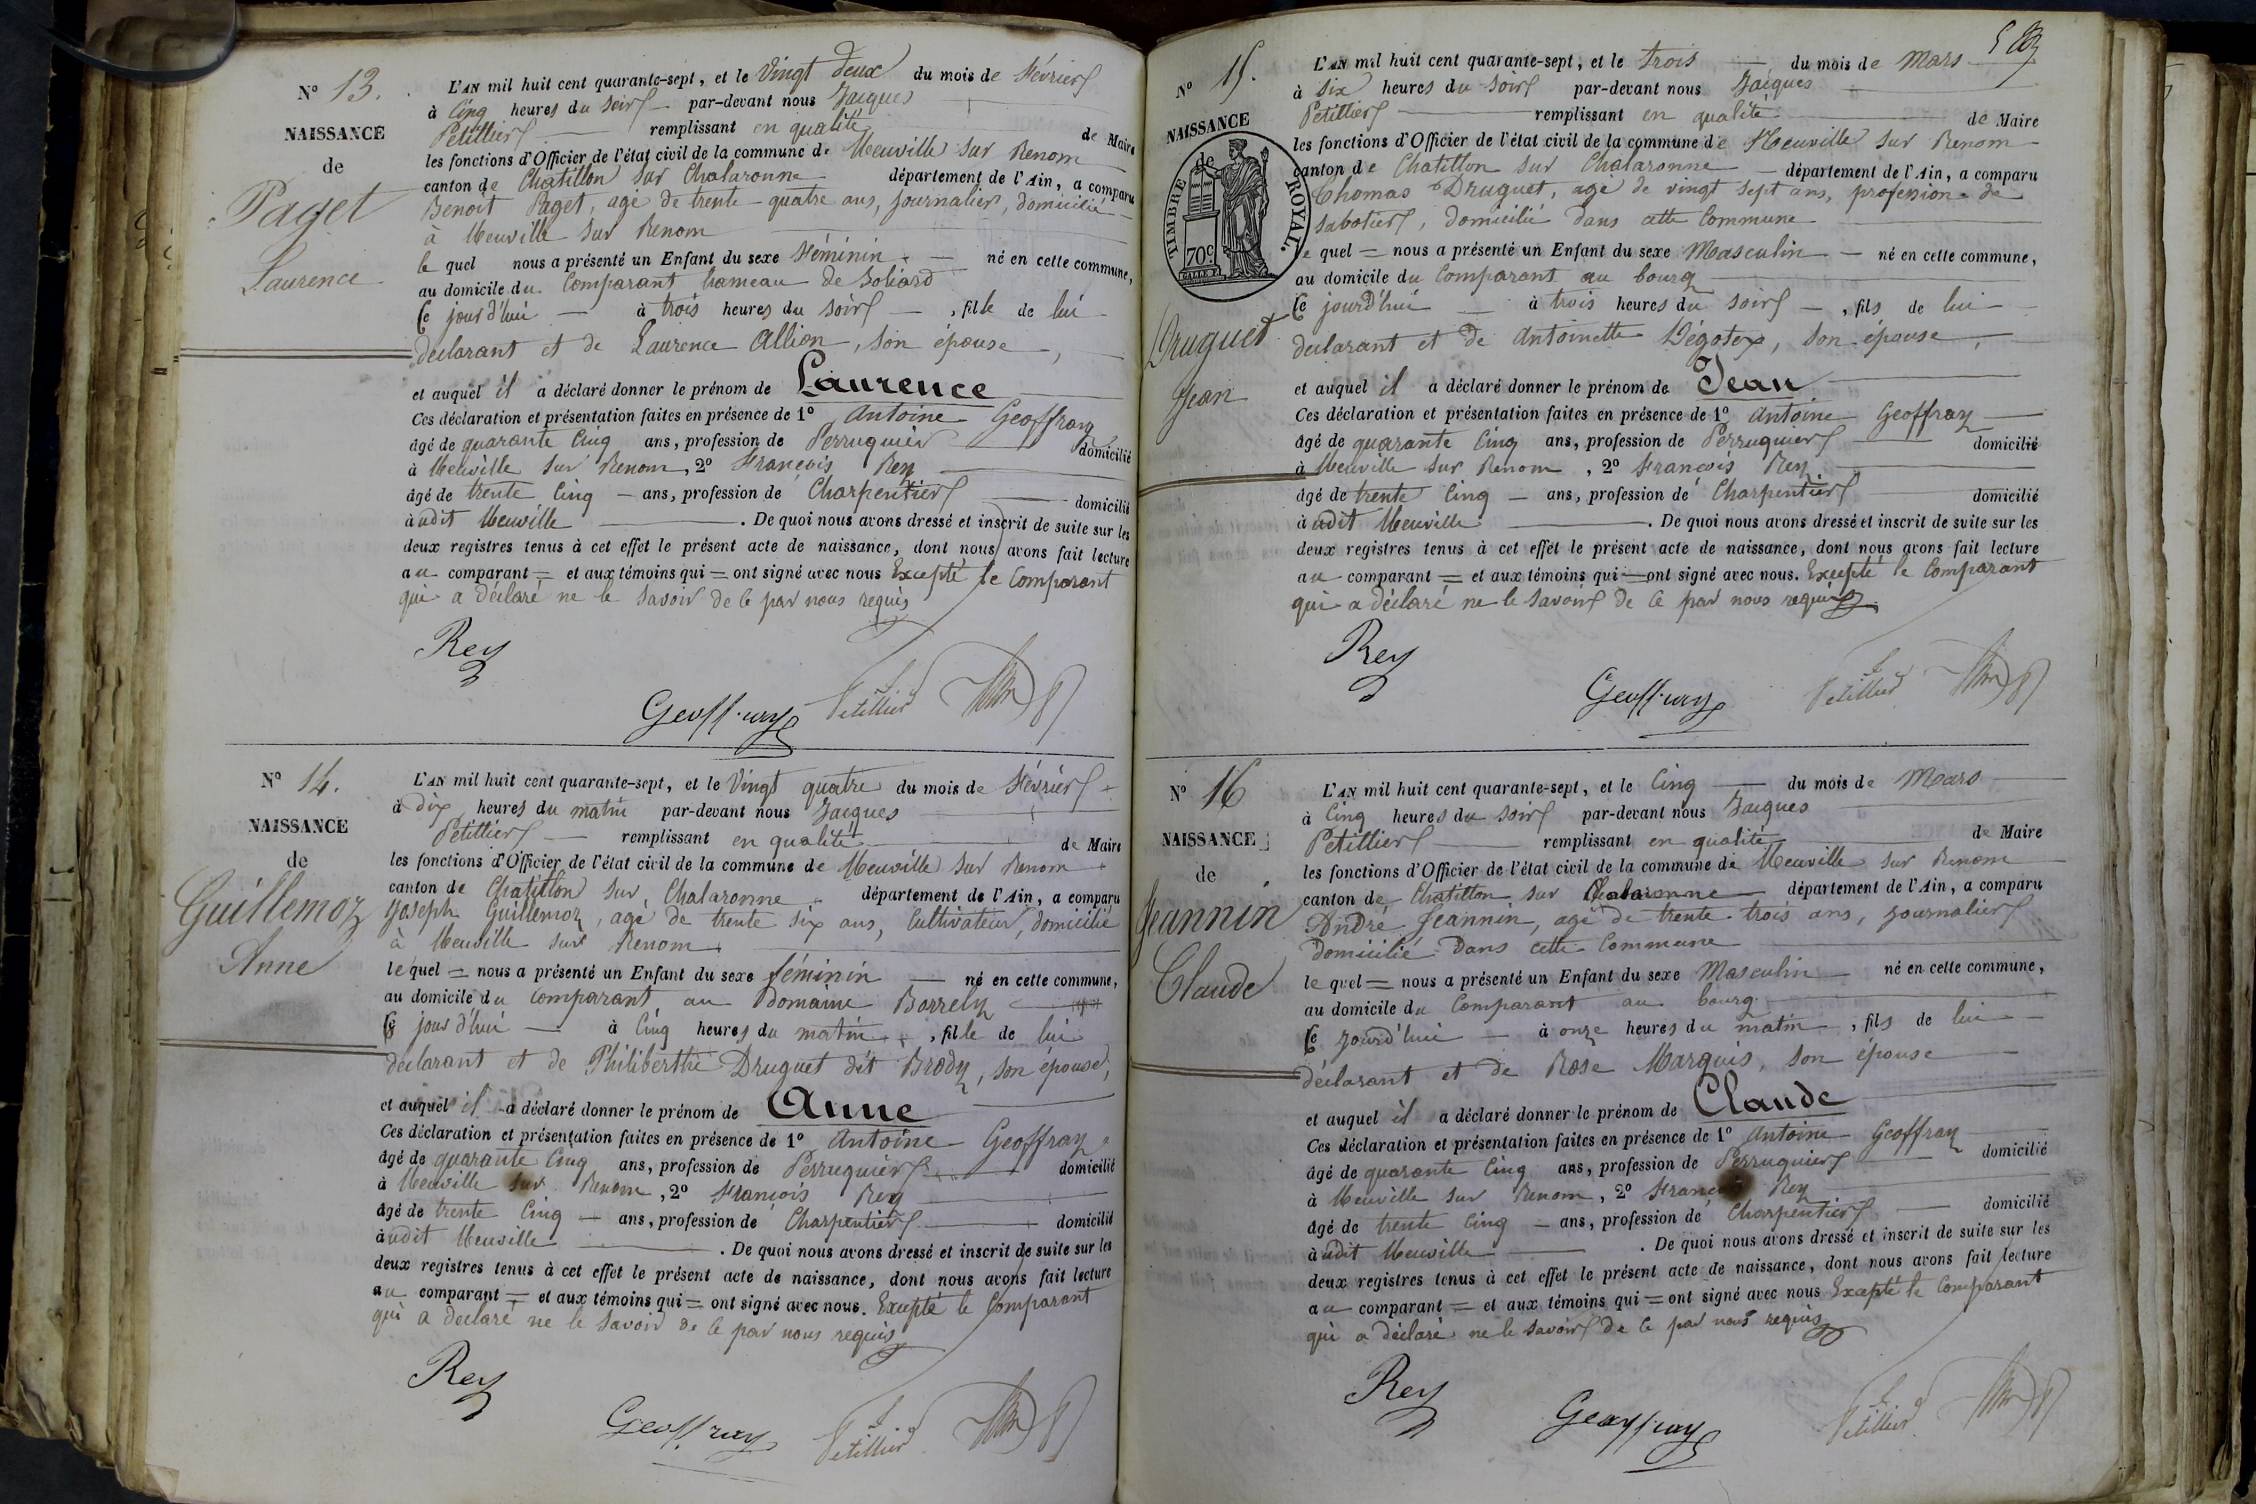 N° 13.
NAISSANCE
de
Paget
Laurence
L'AN mil huit cent quarante-sept, et le Vingt deux du mois de Février
à Cinq heures du soir par-devant nous Jacques
Petillier remplissant en qualité de Maire
les fonctions d'Officier de l'état civil de la commune de Neuville sur Renom
canton de Chatillon sur Chalaronne département de l'Ain, a comparu
Benoit Paget, agé de trente quatre ans, journalier, domicilié
à Neuville sur Renom
le quel nous a présenté un Enfant du sexe Féminin né en cette commune,
au domicile du Comparant hameau de Soliard
Ce jourd'hui à trois heures du soir, fille de lui
declarant et de Laurence Allion, son épouse,
et auquel il a déclaré donner le prénom de Laurence
Ces déclaration et présentation faites en présence de 1° Antoine Geoffray
âgé de quarante Cinq ans, profession de Perruquier domicilié
à Neuville sur Renom, 2° François Rey
âgé de trente Cinq ans, profession de Charpentier domicilié
à udit Neuville. De quoi nous avons dressé et inscrit de suite sur les
deux registres tenus à cet effet le présent acte de naissance, dont nous avons fait lecture
au comparant = et aux témoins qui = ont signé avec nous Excepté le Comparant
qui a déclaré ne le savoir de ce par nous requis
Rey
Geoffray Petillier
N° 14.
NAISSANCE
de
Guillemoz
Anne
L'AN mil huit cent quarante-sept, et le Vingt quatre du mois de Février
à dix heures du matin par-devant nous Jacques
Petillier remplissant en qualité de Maire
les fonctions d'Officier de l'état civil de la commune de Neuville sur Renom
canton de Chatillon sur Chalaronne département de l'Ain, a comparu
Joseph Guillemoz, agé de trente six ans, Cultivateur, domicilié
à Neuville sur Renom,
le quel = nous a présenté un Enfant du sexe féminin né en cette commune,
au domicile du comparant au Domaine Borrely
Ce jourd'hui à Cinq heures du matin, fille de lui
declarant et de Philiberthe Druguet dit Brody, son épouse,
et auquel il a déclaré donner le prénom de Anne
Ces déclaration et présentation faites en présence de 1° Antoine Geoffray
âgé de quarante Cinq ans, profession de Perruquier domicilié
à Neuville sur Renom, 2° François Rey
âgé de trente Cinq ans, profession de Charpentier domicilié
à udit Neuville. De quoi nous avons dressé et inscrit de suite sur les
deux registres tenus à cet effet le présent acte de naissance, dont nous avons fait lecture
au comparant = et aux témoins qui = ont signé avec nous. Excepté le Comparant
qui a declaré ne le savoir de ce par nous requis
Rey
Geoffray Petillier
N° 15.
NAISSANCE
de
TIMBRE ROYAL.
70c
Druguet
Jean
L'AN mil huit cent quarante-sept, et le trois du mois de Mars
à six heures du soir par-devant nous Jacques
Petillier remplissant en qualité de Maire
les fonctions d'Officier de l'état civil de la commune de Neuville sur Renom
canton de Chatillon sur Chalaronne département de l'Ain, a comparu
Thomas Druguet, agé de vingt sept ans, profession de
sabotier, domicilié dans cette Commune
le quel = nous a présenté un Enfant du sexe Masculin né en cette commune,
au domicile du Comparant au bourg
Ce jourd'hui à trois heures du soir, fils de lui
declarant et de Antoinette Dégotex, son épouse,
et auquel il a déclaré donner le prénom de Jean
Ces déclaration et présentation faites en présence de 1° Antoine Geoffray
âgé de quarante Cinq ans, profession de Perruquier domicilié
à Neuville sur Renom, 2° François Rey
âgé de trente Cinq ans, profession de Charpentier domicilié
à udit Neuville. De quoi nous avons dressé et inscrit de suite sur les
deux registres tenus à cet effet le présent acte de naissance, dont nous avons fait lecture
au comparant = et aux témoins qui = ont signé avec nous. Excepté le Comparant
qui a déclaré ne le savoir de ce par nous requis
Rey
Geoffray Petillier
N° 16
NAISSANCE
de
Jeannin
Claude
L'AN mil huit cent quarante-sept, et le Cinq du mois de Mars
à Cinq heures du soir par-devant nous Jacques
Petillier remplissant en qualité de Maire
les fonctions d'Officier de l'état civil de la commune de Neuville sur Renom
canton de Chatillon sur Chalaronne département de l'Ain, a comparu
André Jeannin, agé de trente trois ans, journalier
domicilié dans cette Commune
le quel = nous a présenté un Enfant du sexe Masculin né en cette commune,
au domicile du Comparant au bourg
Ce jourd'hui à onze heures du matin, fils de lui
déclarant et de Rose Marquis, son épouse
et auquel il a déclaré donner le prénom de Claude
Ces déclaration et présentation faites en présence de 1° Antoine Geoffray
âgé de quarante Cinq ans, profession de Perruquier domicilié
à Neuville sur Renom, 2° François Rey
âgé de trente Cinq ans, profession de Charpentier domicilié
à udit Neuville. De quoi nous avons dressé et inscrit de suite sur les
deux registres tenus à cet effet le présent acte de naissance, dont nous avons fait lecture
au comparant = et aux témoins qui = ont signé avec nous Excepté le Comparant
qui a déclaré ne le savoir de ce par nous requis
Rey
Geoffray Petillier